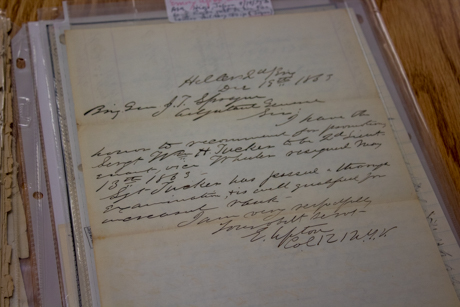 Dec 15th 1863
Brig Gen J.T. Sprague
Adjutant General
Sir,
I have the
honor to recommend for promotion
Sergt Wm H Tucker to be 2d Lieut-
enant, vice Wheeler resigned Nov
13th 1863.
Sgt Tucker has passed a
examination, & is well qualified for
rank.
I am very respectfully
Your obt servt
E. Upton
Col 121 N.Y.V.